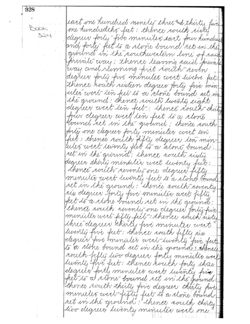 328
Book
east one hundred ninety three & thirty five
one hundredths feet: thence south sixty
degrees forty five minutes east four hundred
and forty feet to a stone bound set in the
ground in the southwestern line of said
private way: thence leaving said private
way and running first south forty
degrees forty five minutes west twelve feet:
thence south sixteen degrees forty five min-
utes west ten feet to a stone bound set in
the ground: thence south twenty eight
degrees west ten feet: thence south thirty
four degrees west ten feet to a stone
bound set in the ground: thence south
forty one degrees forty minutes west ten
feet: thence south fifty degrees ten min-
utes west twenty feet to a stone bound
set in the ground: thence south sixty
degrees thirty minutes west twenty feet:
thence south seventy one degrees fifty
minutes west twenty feet to a stone bound
set in the ground: thence south
six degrees forty five minutes west fifty
feet to a stone bound set in the ground:
thence south seventy one degrees forty five
minutes west fifty feet: thence south sixty
three degrees thirty five minutes west
twenty five feet: thence south fifty six
degrees five minutes west twenty five feet
to a stone bound set in the ground: thence
south fifty two degrees forty minutes west
twenty five feet: thence south forty three
degrees forty minutes west twenty five
feet to a stone bound set in the ground:
thence south thirty five degrees thirty five
minutes west fifty feet to a stone bound
set in the ground: thence south thirty
two degrees twenty minutes west one